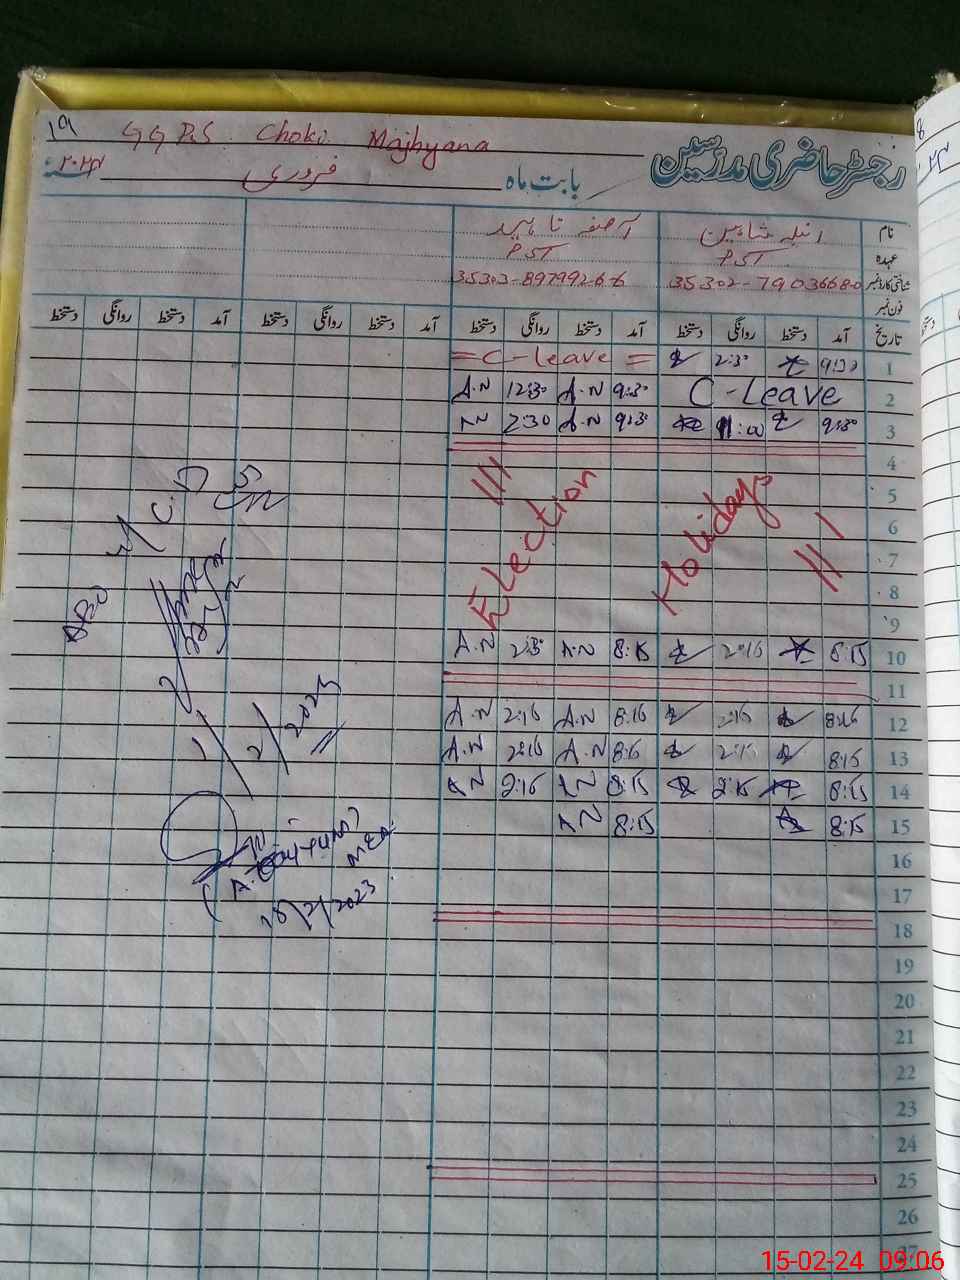 19 GGPS Choki Majhyana
رجسٹر حاضری مدرسین
بابت ماہ فروری ۲۰۲۴
نام انیلہ شاہین آصفہ ناہید
عہدہ PST PST
شناختی کارڈ نمبر 35302-7903668-0 35303-8979926-6
فون نمبر
تاریخ آمد دستخط روانگی دستخط آمد دستخط روانگی دستخط آمد دستخط روانگی دستخط آمد دستخط روانگی دستخط
1 9:30 2:30 = C-leave =
2 C-Leave 9:30 A.N 12:30 A.N
3 9:30 11:00 9:30 A.N 2:30 A.N
4
5
6
7
8
9
Election Holidays
10 8:15 2:16 8:15 A.N 2:30 A.N
11
12 8:16 2:15 8:16 A.N 2:16 A.N
13 8:15 2:15 8:16 A.N 2:16 A.N
14 8:15 2:15 8:15 A.N 2:16 A.N
15 8:15 8:15 A.N
16
17
18
19
20
21
22
23
24
25
26
27
C.D
1/2/2023
MEA
15/2/2023
15-02-24 09:06